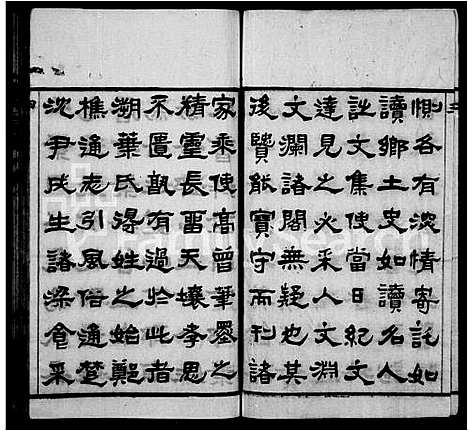 惻各有深情寄託如
讀鄉土史如讀名人
註文集使當日紀文
達見之必采人文淵
文瀾諸閣無疑也其
後賢猷寶守而刊諸
家乘使高曾筆墨之
精靈長留天壤孝思
不匱孰有過於此者
溯葉氏得姓之始鄭
樵通志引風俗通楚
沈尹戌生諸梁食采